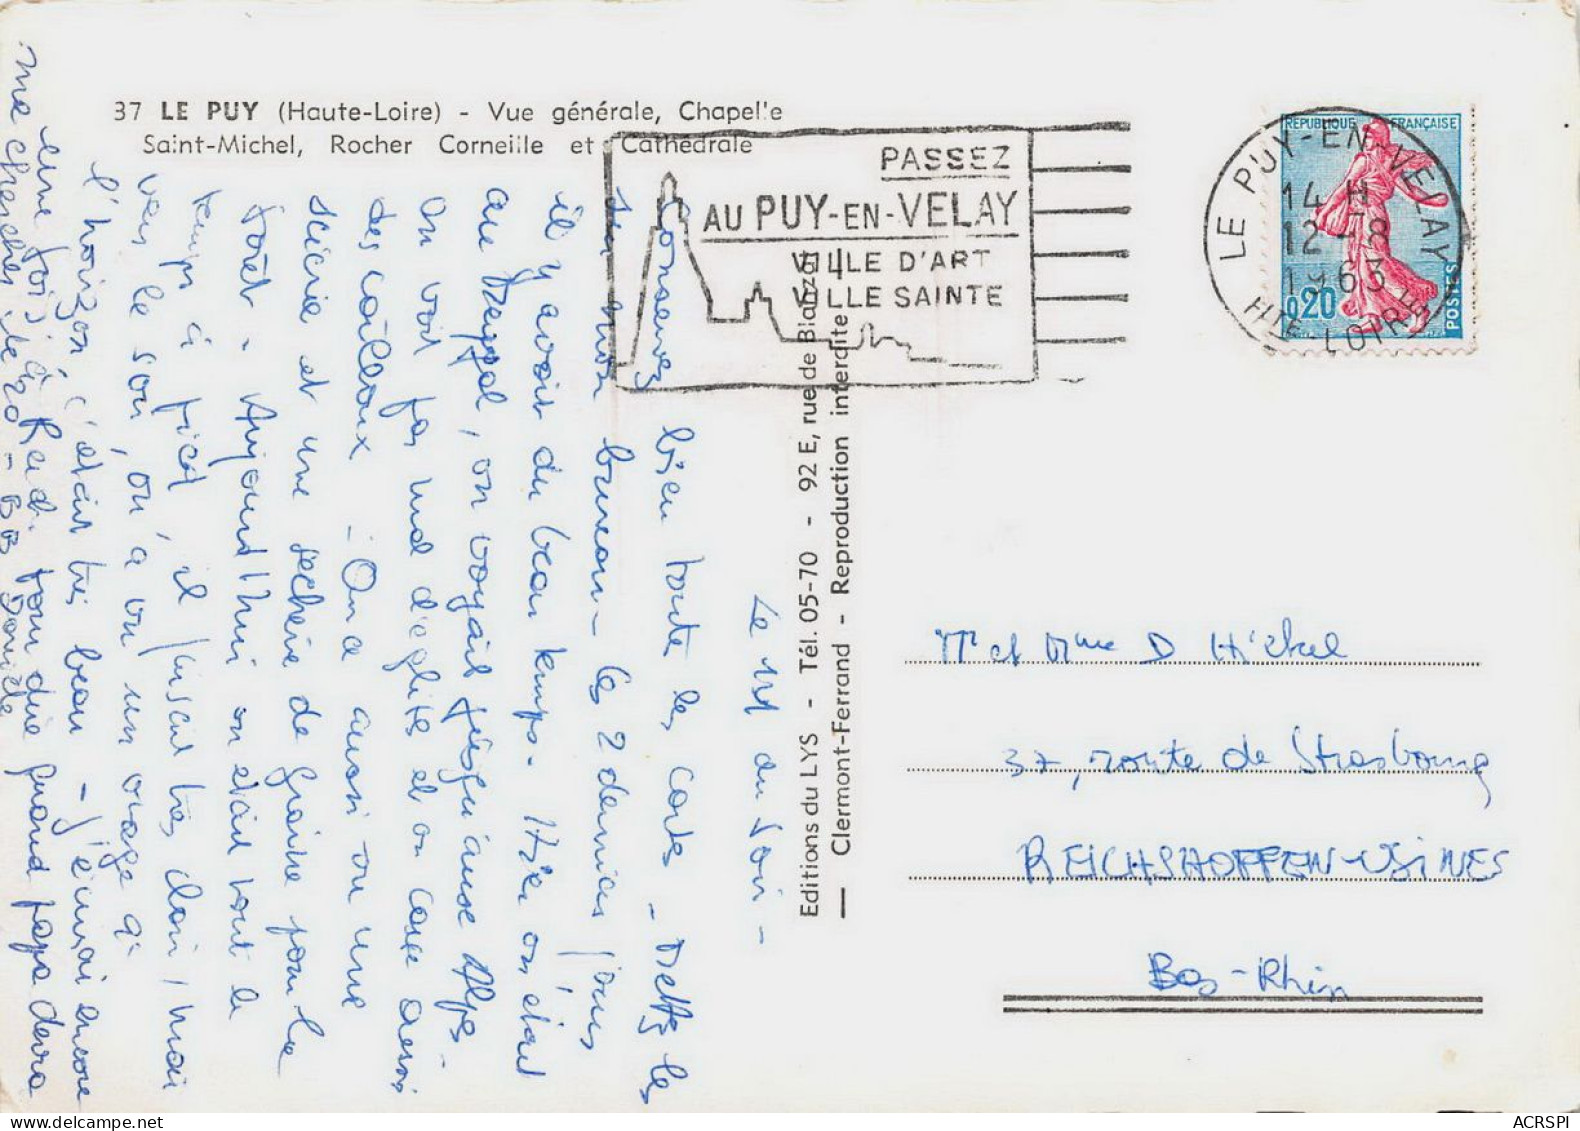 37 LE PUY (Haute-Loire) - Vue générale, Chapelle
Saint-Michel, Rocher Corneille et Cathédrale
PASSEZ
AU PUY-EN-VELAY
VILLE D'ART
VILLE SAINTE
REPUBLIQUE FRANÇAISE
0,20
POSTES
LE PUY-EN-VELAY
14 H
12-8
1963
HTE-LOIRE
Editions du LYS - Tél. 05-70 - 92 E, rue de Blanzat
Clermont-Ferrand - Reproduction interdite
Le 11 au soir -
Conservez bien toute les cartes - Mettez les
sur mon bureau - Les 2 derniers jours
il y avait du beau temps. Hier on était
au , on voyait jusqu'aux Alpes.
On voit pas mal d'églises et on casse aussi
des cailloux - On a aussi vu une
scierie et une sècherie de graine pour la
forêt - Aujourd'hui on était tout le
temps à pied, il faisait très clair, mais
vers le soir, on a vu un orage à
l'horizon, c'était très beau - J'écrirai encore
une fois à Reich. pour dire quand papa devra
me chercher - BB Danièle
Mr et Mme D Hickel
37, route de Strasbourg
REICHSHOFFEN-USINES
Bas-Rhin
ACRSPI